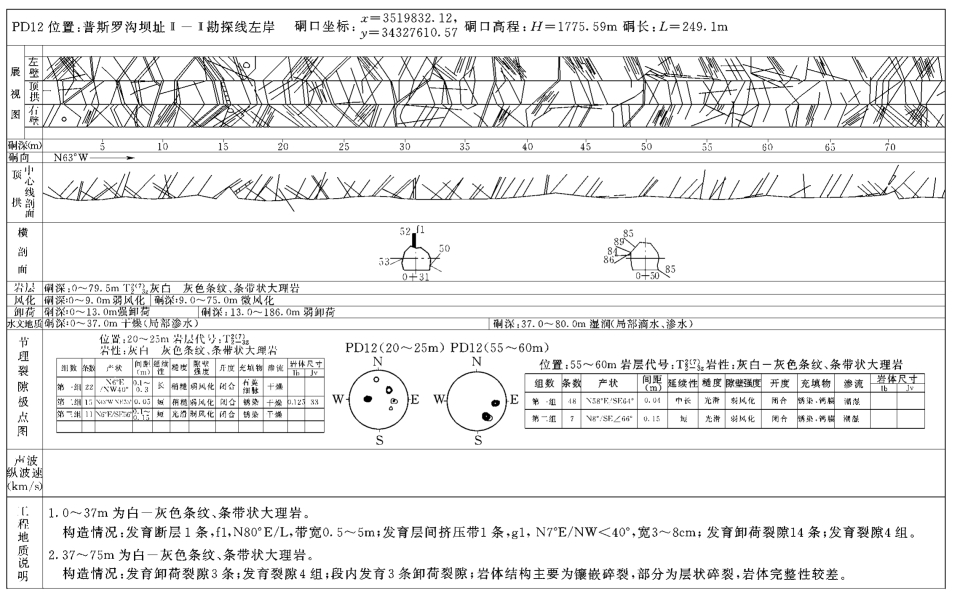 PD12 位置:普斯罗沟坝址Ⅱ－Ⅰ勘探线左岸 硐口坐标: x=3519832.12, y=34327610.57 硐口高程:H=1775.59m 硐长:L=249.1m
展视图 左壁 顶拱 右壁
硐深(m) 5 10 15 20 25 30 35 40 45 50 55 60 65 70
硐向 N63°W
顶拱 中心线剖面
横剖面 52 f1 53 50 0+31 85 89 84 86 85 0+50
岩层 硐深:0～79.5m 灰白 灰色条纹、条带状大理岩
风化 硐深:0～9.0m弱风化 硐深:9.0～75.0m 微风化
卸荷 硐深:0～13.0m强卸荷 硐深:13.0～186.0m 弱卸荷
水文地质 硐深:0～37.0m 干燥(局部渗水) 硐深:37.0～80.0m 湿润(局部滴水、渗水)
节理裂隙级点图
位置:20～25m 岩层代号:
岩性:灰白 灰色条纹、条带状大理岩
组数 条数 产状 间距(m) 延续性 糙度 隙壁强度 开度 充填物 渗流 岩体尺寸 Ib Jv
第一组 22 N6°E/NW40° 0.1～0.3 长 稍糙 弱风化 闭合 干燥
第二组 15 0.05 短 稍糙 弱风化 闭合 锈染 干燥 0.125 33
第三组 11 0.1～0.15 短 光滑 弱风化 闭合 锈染 干燥
PD12(20～25m) PD12(55～60m)
N W E S
N W E S
位置:55～60m 岩层代号: 岩性:灰白－灰色条纹、条带状大理岩
组数 条数 产状 间距(m) 延续性 糙度 隙壁强度 开度 充填物 渗流 岩体尺寸 Ib Jv
第一组 48 N58°E/SE64° 0.04 中长 光滑 弱风化 闭合 锈染、钙膜 潮湿
第二组 7 N8°/SE∠66° 0.15 短 光滑 弱风化 闭合 锈染、钙膜 潮湿
声波纵波速(km/s)
工程地质说明
1.0～37m 为白－灰色条纹、条带状大理岩。
构造情况:发育断层1条,f1,N80°E/L,带宽0.5～5m;发育层间挤压带1条,g1, N7°E/NW<40°,宽3～8cm; 发育卸荷裂隙14条;发育裂隙4组。
2.37～75m 为白－灰色条纹、条带状大理岩。
构造情况:发育卸荷裂隙3条;发育裂隙4组;段内发育3条卸荷裂隙;岩体结构主要为镶嵌碎裂,部分为层状碎裂,岩体完整性较差。